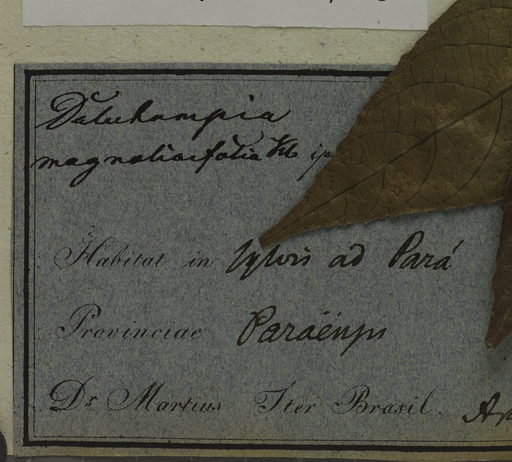 Dalechampia
magnoliaefolia
Habitat in sylvis ad Pará
Provinciae Paraënsis
Dr. Martius Iter Brasil.